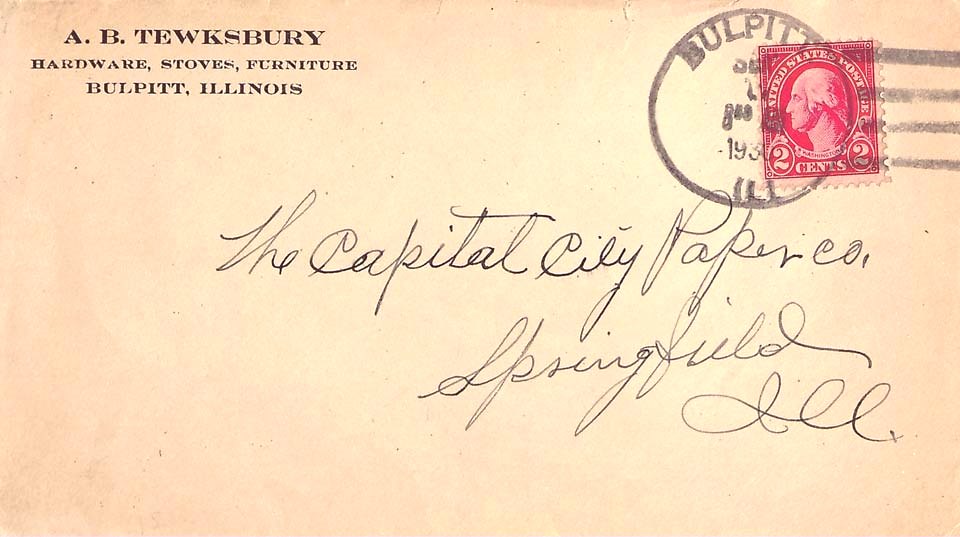 A. B. TEWKSBURY
HARDWARE, STOVES, FURNITURE
BULPITT, ILLINOIS
BULPITT
ILL
UNITED STATES POSTAGE
WASHINGTON
2 CENTS 2
The Capital City Paper Co.
Springfield
Ill.